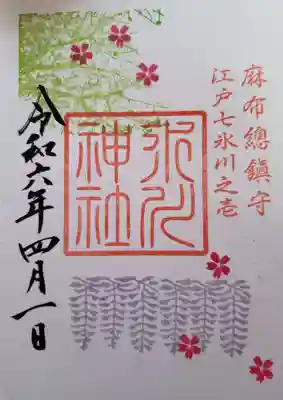 麻布總鎮守
江戸七氷川之壱
氷川神社
令和六年四月一日